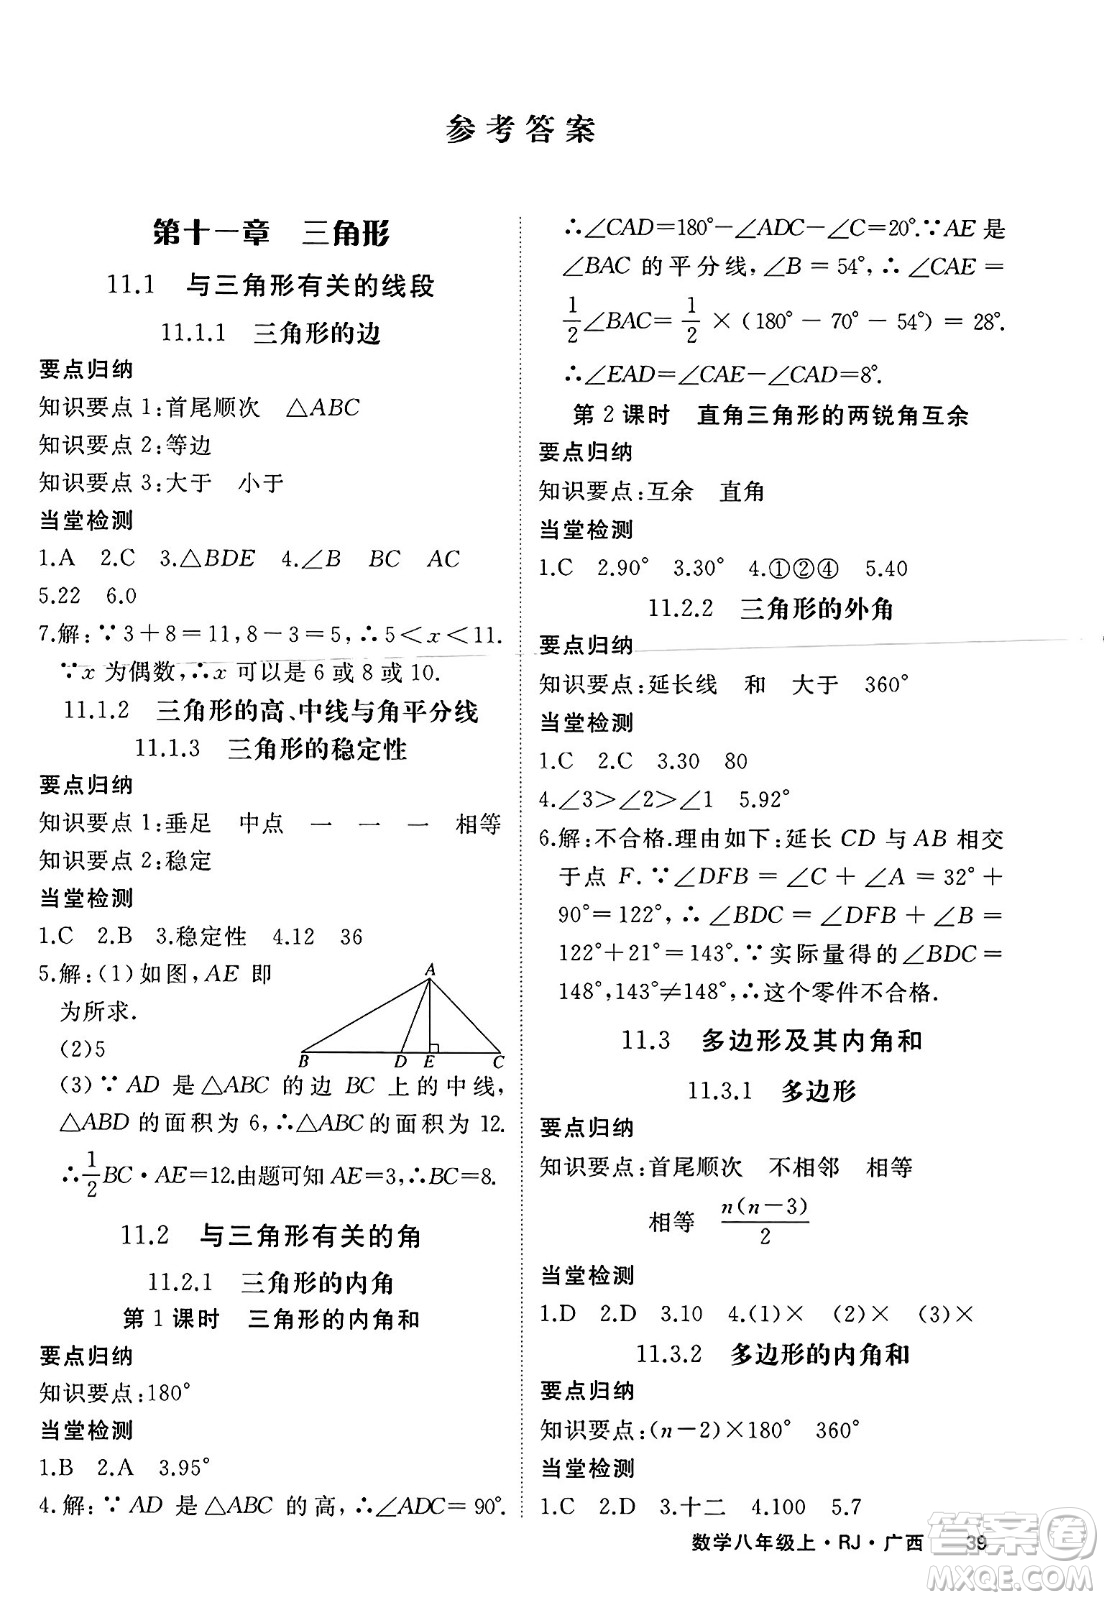 参考答案
第十一章　三角形
11.1　与三角形有关的线段
11.1.1　三角形的边
要点归纳
知识要点 1:首尾顺次　△ABC
知识要点 2:等边
知识要点 3:大于　小于
当堂检测
1.A　2.C　3.△BDE　4.∠B　BC　AC
5.22　6.0
7.解:∵3+8=11,8-3=5,∴5<x<11.
∵x 为偶数,∴x 可以是 6 或 8 或 10.
11.1.2　三角形的高、中线与角平分线
11.1.3　三角形的稳定性
要点归纳
知识要点 1:垂足　中点　一　一　一　相等
知识要点 2:稳定
当堂检测
1.C　2.B　3.稳定性　4.12　36
5.解:(1)如图,AE 即
为所求.
(2)5
A
B　D　E　C
(3)∵AD 是△ABC 的边 BC 上的中线,
△ABD 的面积为 6,∴△ABC 的面积为 12.
∴1/2 BC·AE=12.由题可知 AE=3,∴BC=8.
11.2　与三角形有关的角
11.2.1　三角形的内角
第 1 课时　三角形的内角和
要点归纳
知识要点:180°
当堂检测
1.B　2.A　3.95°
4.解:∵AD 是△ABC 的高,∴∠ADC=90°.
∴∠CAD=180°-∠ADC-∠C=20°.∵AE 是
∠BAC 的平分线,∠B=54°,∴∠CAE=
1/2∠BAC=1/2×(180°-70°-54°)=28°.
∴∠EAD=∠CAE-∠CAD=8°.
第 2 课时　直角三角形的两锐角互余
要点归纳
知识要点:互余　直角
当堂检测
1.C　2.90°　3.30°　4.①②④　5.40
11.2.2　三角形的外角
要点归纳
知识要点:延长线　和　大于　360°
当堂检测
1.C　2.C　3.30　80
4.∠3>∠2>∠1　5.92°
6.解:不合格.理由如下:延长 CD 与 AB 相交
于点 F.∵∠DFB=∠C+∠A=32°+
90°=122°,∴∠BDC=∠DFB+∠B=
122°+21°=143°.∵实际量得的∠BDC=
148°,143°≠148°,∴这个零件不合格.
11.3　多边形及其内角和
11.3.1　多边形
要点归纳
知识要点:首尾顺次　不相邻　相等
相等　n(n-3)/2
当堂检测
1.D　2.D　3.10　4.(1)×　(2)×　(3)×
11.3.2　多边形的内角和
要点归纳
知识要点:(n-2)×180°　360°
当堂检测
1.C　2.D　3.十二　4.100　5.7
数学八年级上·RJ·广西　39
答案圈
MXQE.COM